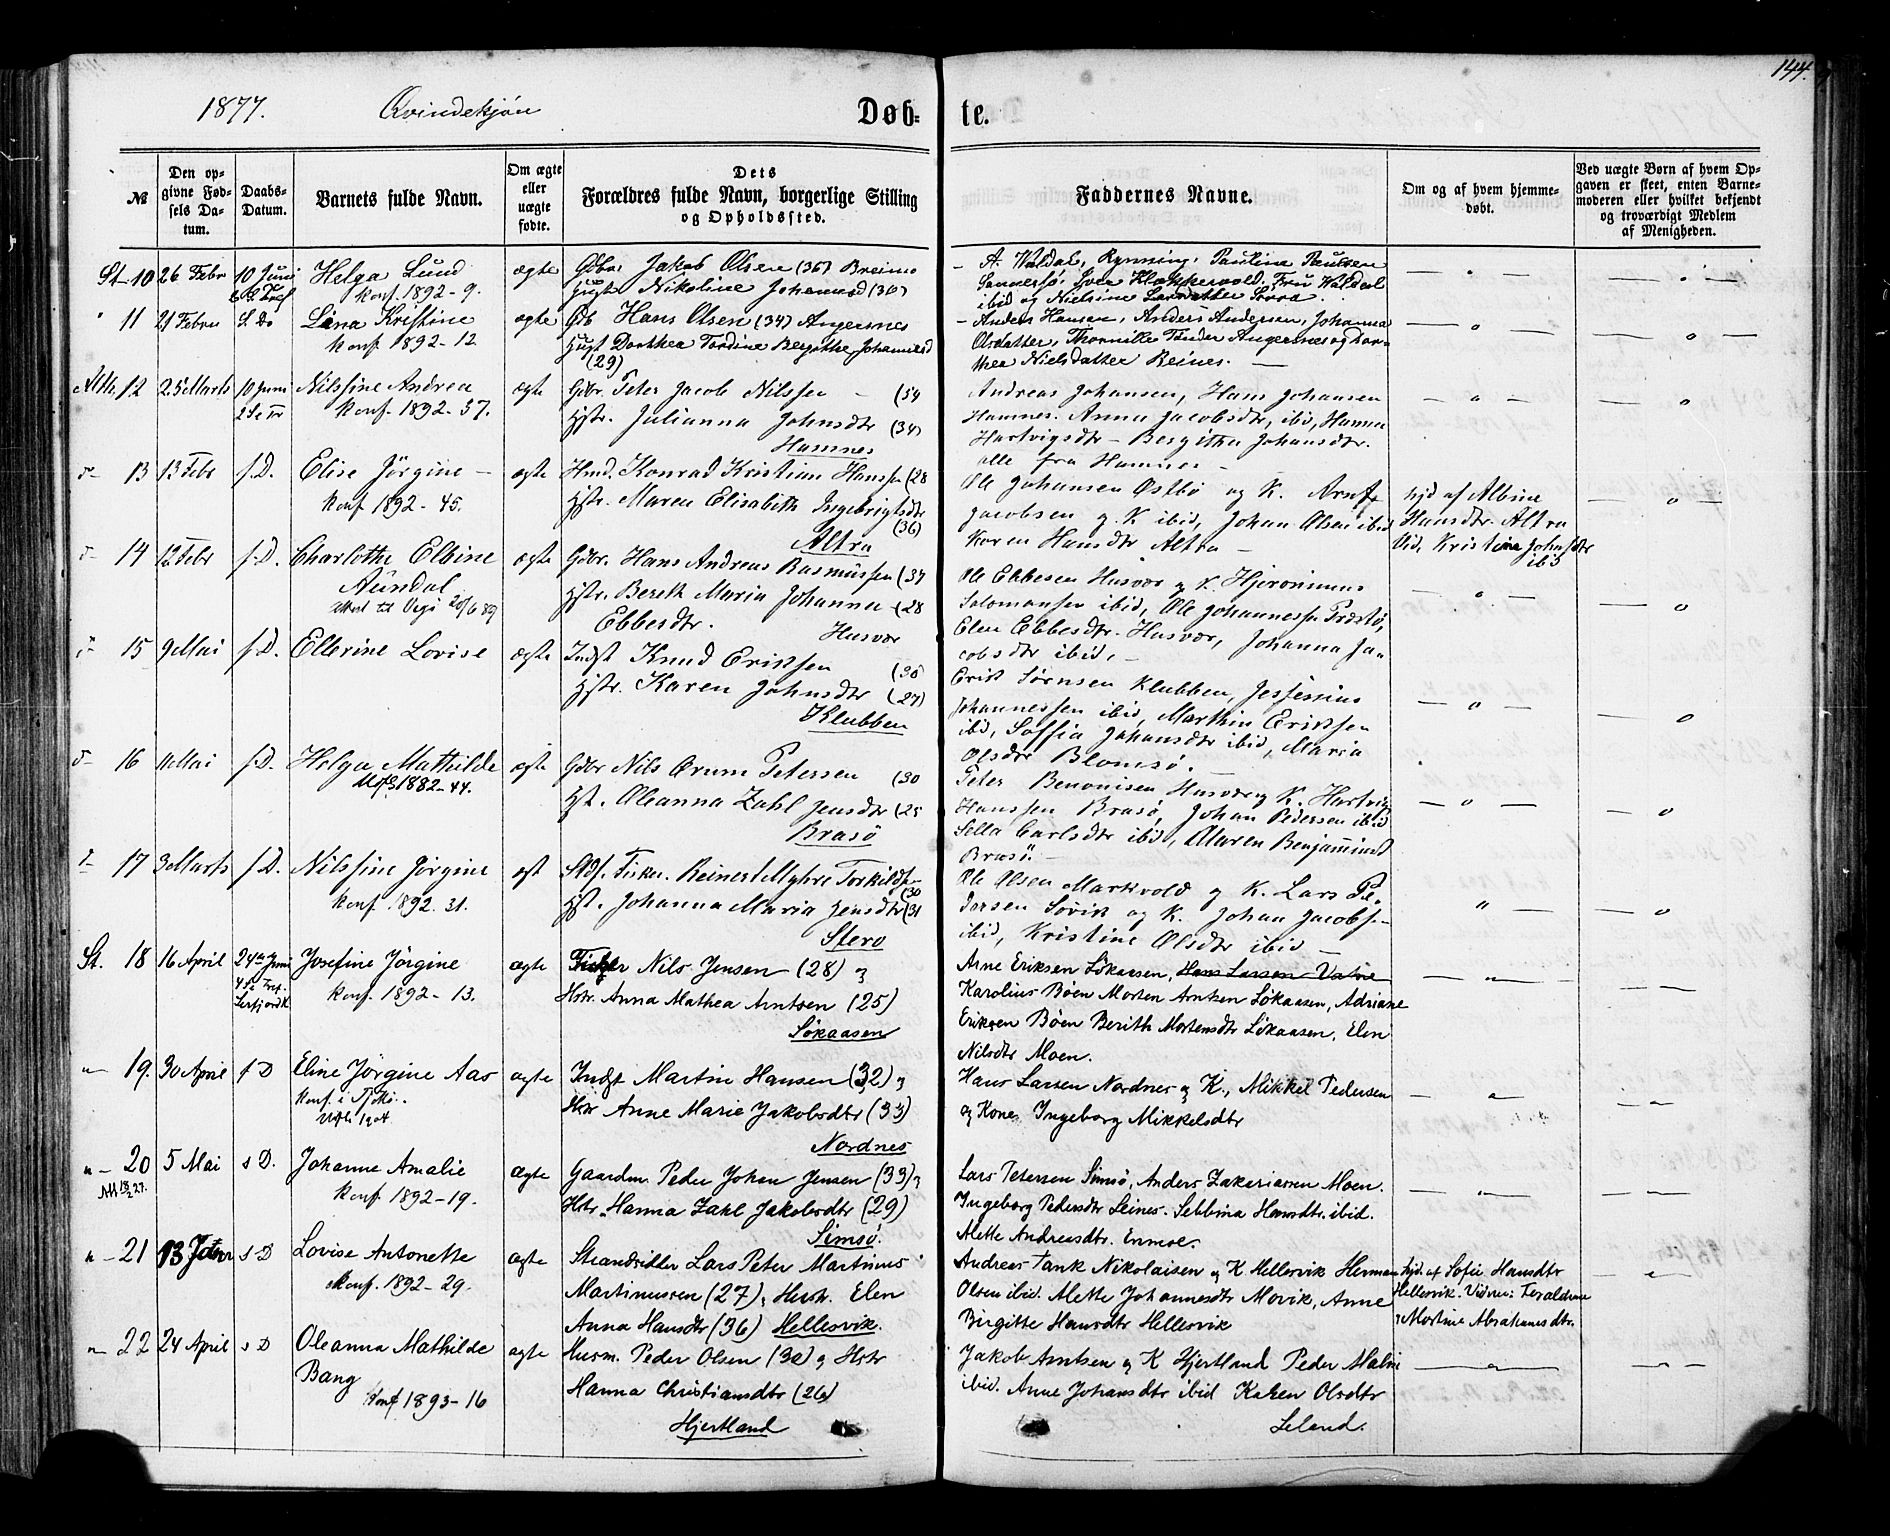 144.
1877. Qvindekjøn Døb-
te.
№
Den op-
givne Fød-
sels Da-
tum.
Daabs-
Datum.
Barnets fulde Navn.
Om ægte
eller
uægte
fødte.
Dets
Forældres fulde Navn, borgerlige Stilling
og Opholdssted.
Faddernes Navne.
Om og af hvem hjemme-
døbt.
Ved uægte Børn af hvem Op-
gaven er skeet, enten Barne-
moderen eller hvilket bekjendt
og troværdigt Medlem
af Menigheden.
St. 10 26 Febr 10 Juni
Helga Lund
Konf. 1892 - 9.
ægte
Gdbr. Jakob Olsen (36) Breimo
Nikoline
A. Waldal, Rynning, Pauline Paulsen
Fru Waldal
ibid og Nielsine
" 11 21 Febru S. Do
Lina Kristine
Konf. 1892 - 12
ægte
Gb Hans Olsen (34) Angersnes
Dorthea Tordine Bergithe Johannesd
(29)
Anders Hansen, Anders Andersen, Johanna
Olsdatter, Angersnes og Dor-
thea Nielsdatter Reines.
12 25 Marts 10 Juni
Nilsine Andrea
Konf. 1892 - 37.
ægte
Gdbr. Peter Jacob Nilssen (54
Hstr. Julianna Johnsdtr (34)
Hamnes
Andreas Johansen, Hans Johansen
Hamnes. Anna Jacobsdtr, ibid, Hanna
Hartvigsdtr - Bergitha Johansdtr.
alle fra Hamnes
13 13 Febr s. D.
Elise Jörgine
Konf 1892 - 45.
ægte
Hmd. Konrad Kristian Hanssen (28
Hstr. Maren Elisabeth Ingebrigtsdtr
(36)
Altra
Ole Johansen Østbö og K.
Jacobsen og K ibid, Johan Olsen ibid
Karen Hansdtr Altra
hjd af Albine
Hansdtr. Altra
Vid, Kristina Johnsdtr
ibid
14 12 Febr s. D.
Charlotha Elbine
Aundal
Attest til Vegö 20/6 89
ægte
Gdbr. Hans Andreas Rasmussen (34
Hstr. Bereth Maria Johanna (28
Ebbesdtr. Husvær
Ole Ebbesen Husvær og K. Hjeronimus
Salomonsen ibid, Ole Johannessen
Elen Ebbesdtr. Husvær, Johanna Ja-
cobsdtr ibid,
15 9 Mai s. D.
Ellerine Lovise
ægte
Indst Knud Eriksen (30
Hstr. Karen Johnsdtr (27)
Klubben
Erik Sörnsen Klubben, Jessenius
Johannessen ibid, Marthin Eriksen
ibid, Soffia Johansdtr ibid, Maria
Olsdtr Blomsö.
16 11 Mai s. D.
Helga Mathilde
1882 - 44.
ægte
Gdbr Nils Ørum Petersen (30
Hst. Oleanna Zahl Jensdtr (25
Brasö
Peter Benonisen Husvær og K. Hartvig
Hanssen Brasö, Johan Pedersen ibid
Sella Carlsdtr ibid, Maren Benjaminsd
Brasö.
17 3 Marts s. D.
Nilssine Jörgine
Konf. 1892. 31.
ægt
Fisker. Reinert Myhre Torkilds-
(30
Hst. Johanna Maria Jensdtr (31
Stero
Ole Olsen Markvold og K. Lars Pe-
dersen Søvik og K. Johan Jacobs-
ibid, Kristine Olsdtr ibid
St. 18 16 April 24de Juni
4 S e Tref.
Leirfjord K.
Josefine Jörgine
Konf. 1892 - 13.
ægte
Fisker Nils Jensen (28) og
Hstr. Anna Mathea Arntsen (25)
Søkaasen
Arne Eriksen Løkaasen, Hans Larsen
Karolius Bøen Morten Arntsen Løkaasen, Adriane
Eriksen Bøen Berith Mortensdtr Løkaasen, Elen
Nilsdtr Moen.
" 19. 30 April s D
Eline Jörgine Aas
Konf. i Tjøtta.
1904
ægte
Indst Martin Hansen (32) og
Hstr Anne Marie Jakobsdtr (33)
Nordnes
Hans Larsen Nordnes og K., Mikkel Pedersen
og Kone, Ingeborg Mikkelsdtr
" 20 5 Mai s D.
Johanne Amalie
Konf. 1892 - 19.
ægte
Gaardm. Peder Johan Jensen (33) og
Hstr. Hanna Zahl Jakobsdtr (29)
Simsø.
Lars Petersen Simsø, Anders Zakariassen Moen.
Ingeborg Pedersdtr Leines. Sebbina Hansdtr. ibid.
Mette Andreasdtr.
" 21 13 s D
Lovise Antonette
Konf. 1892 - 29.
ægte
Strandsidder Lars Peter Martinus
Martinussen (27), Hustr. Elen
Anna Hansdtr (36) Hellesvik.
Andreas Tank Nikolaisen og K Hellesvik Herman
Olsen ibid. Mette Johannesdtr Movik, Anne
Birgitte Hansdtr Hellesvik
hjd. af Sofie Hansdtr
Hellesvik. Vidner: Forældrene
og Martine Abrahamsdtr.
" 22 24 April s D
Oleanna Mathilde
Bang
Konf 1893 - 16
ægte
Husm. Peder Olsen (30) og Hstr
Hanna Christiansdtr (26)
Hjertland
Jakob Arntsen og K Hjertland Peder
ibid. Anne Johansdtr ibid Karen Olsdtr
Leland.